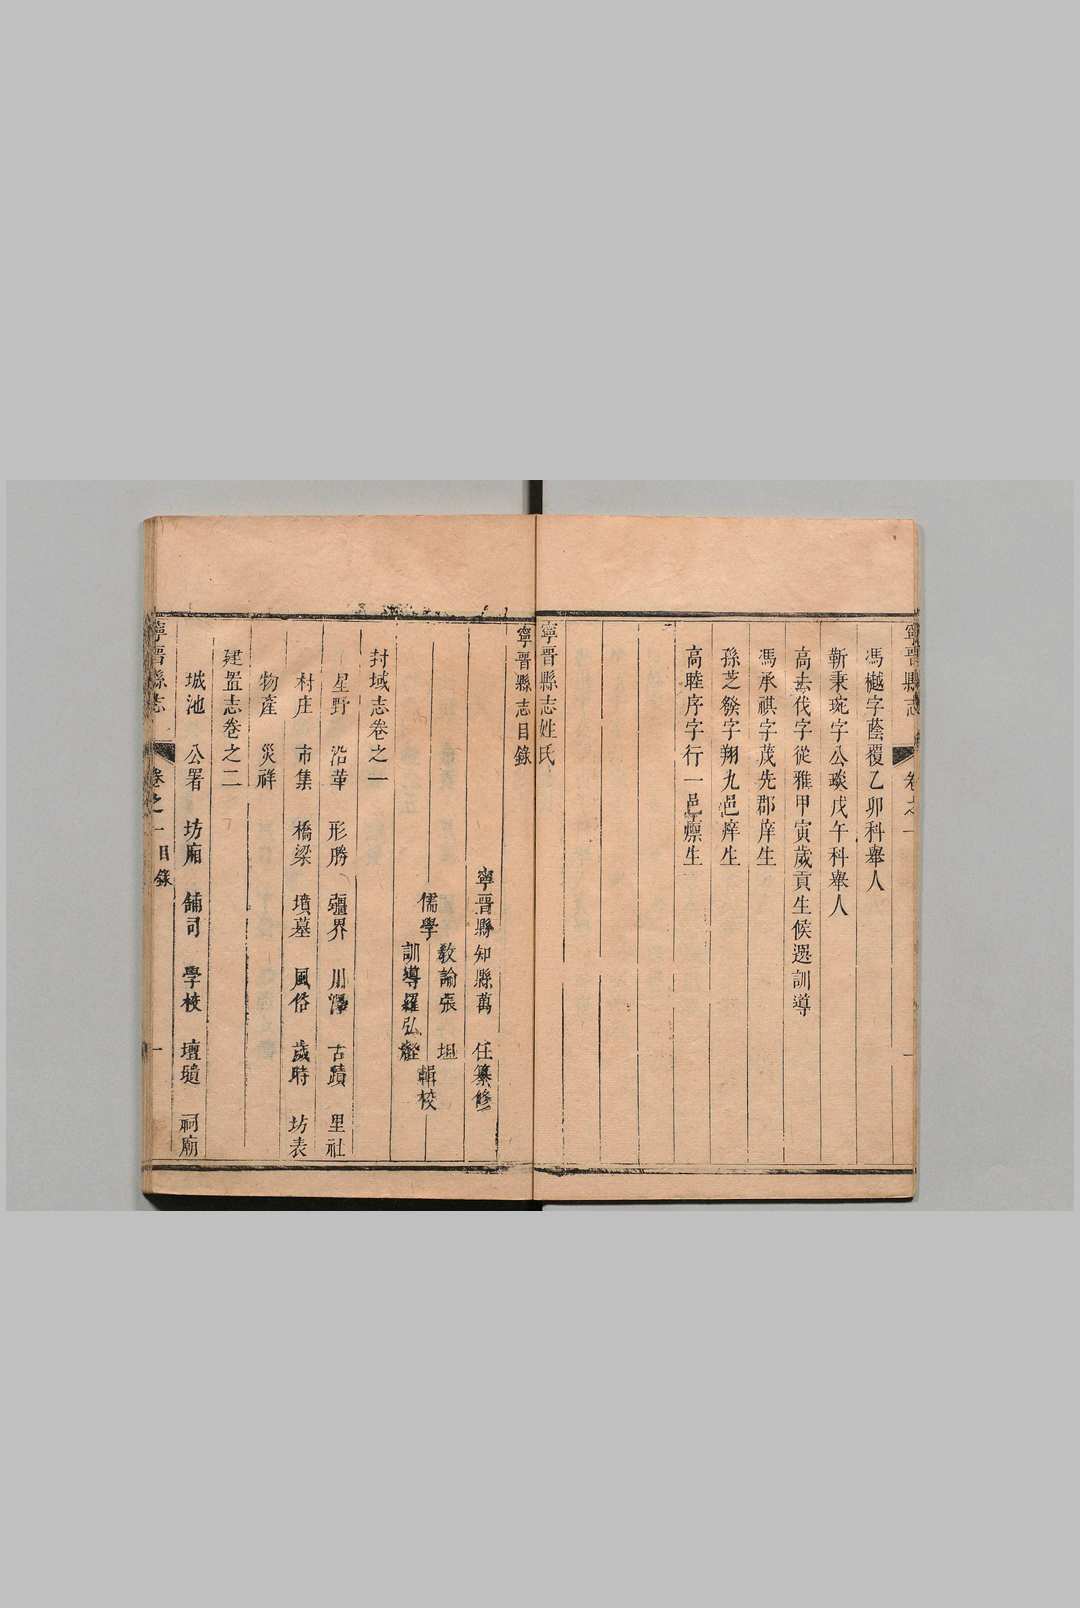 寧晉縣志
卷之一
馮樾字蔭覆乙卯科舉人
靳秉琬字公琰戊午科舉人
高去伐字從雅甲寅歲貢生候選訓導
馮承祺字茂先郡庠生
孫芝發字翔九邑庠生
高睦序字行一邑廩生
寧晉縣志姓氏
寧晉縣志目錄
寧晉縣知縣萬 任纂修
儒學
教諭張 坦
訓導羅弘
輯校
封域志卷之一
星野 沿革 形勝 疆界 川澤 古蹟 里社
村庄 市集 橋梁 墳墓 風俗 歲時 坊表
物產 災祥
建置志卷之二
城池 公署 坊廂 鋪司 學校 壇壝 祠廟
寧晉縣志
卷之一目錄
一